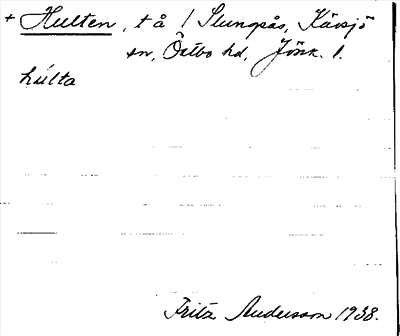 + Hulten, t å / Slungsås, Kävsjö
sn, Östbo hd, Jönk. l.
húlta
Fritz Anderson 1938.